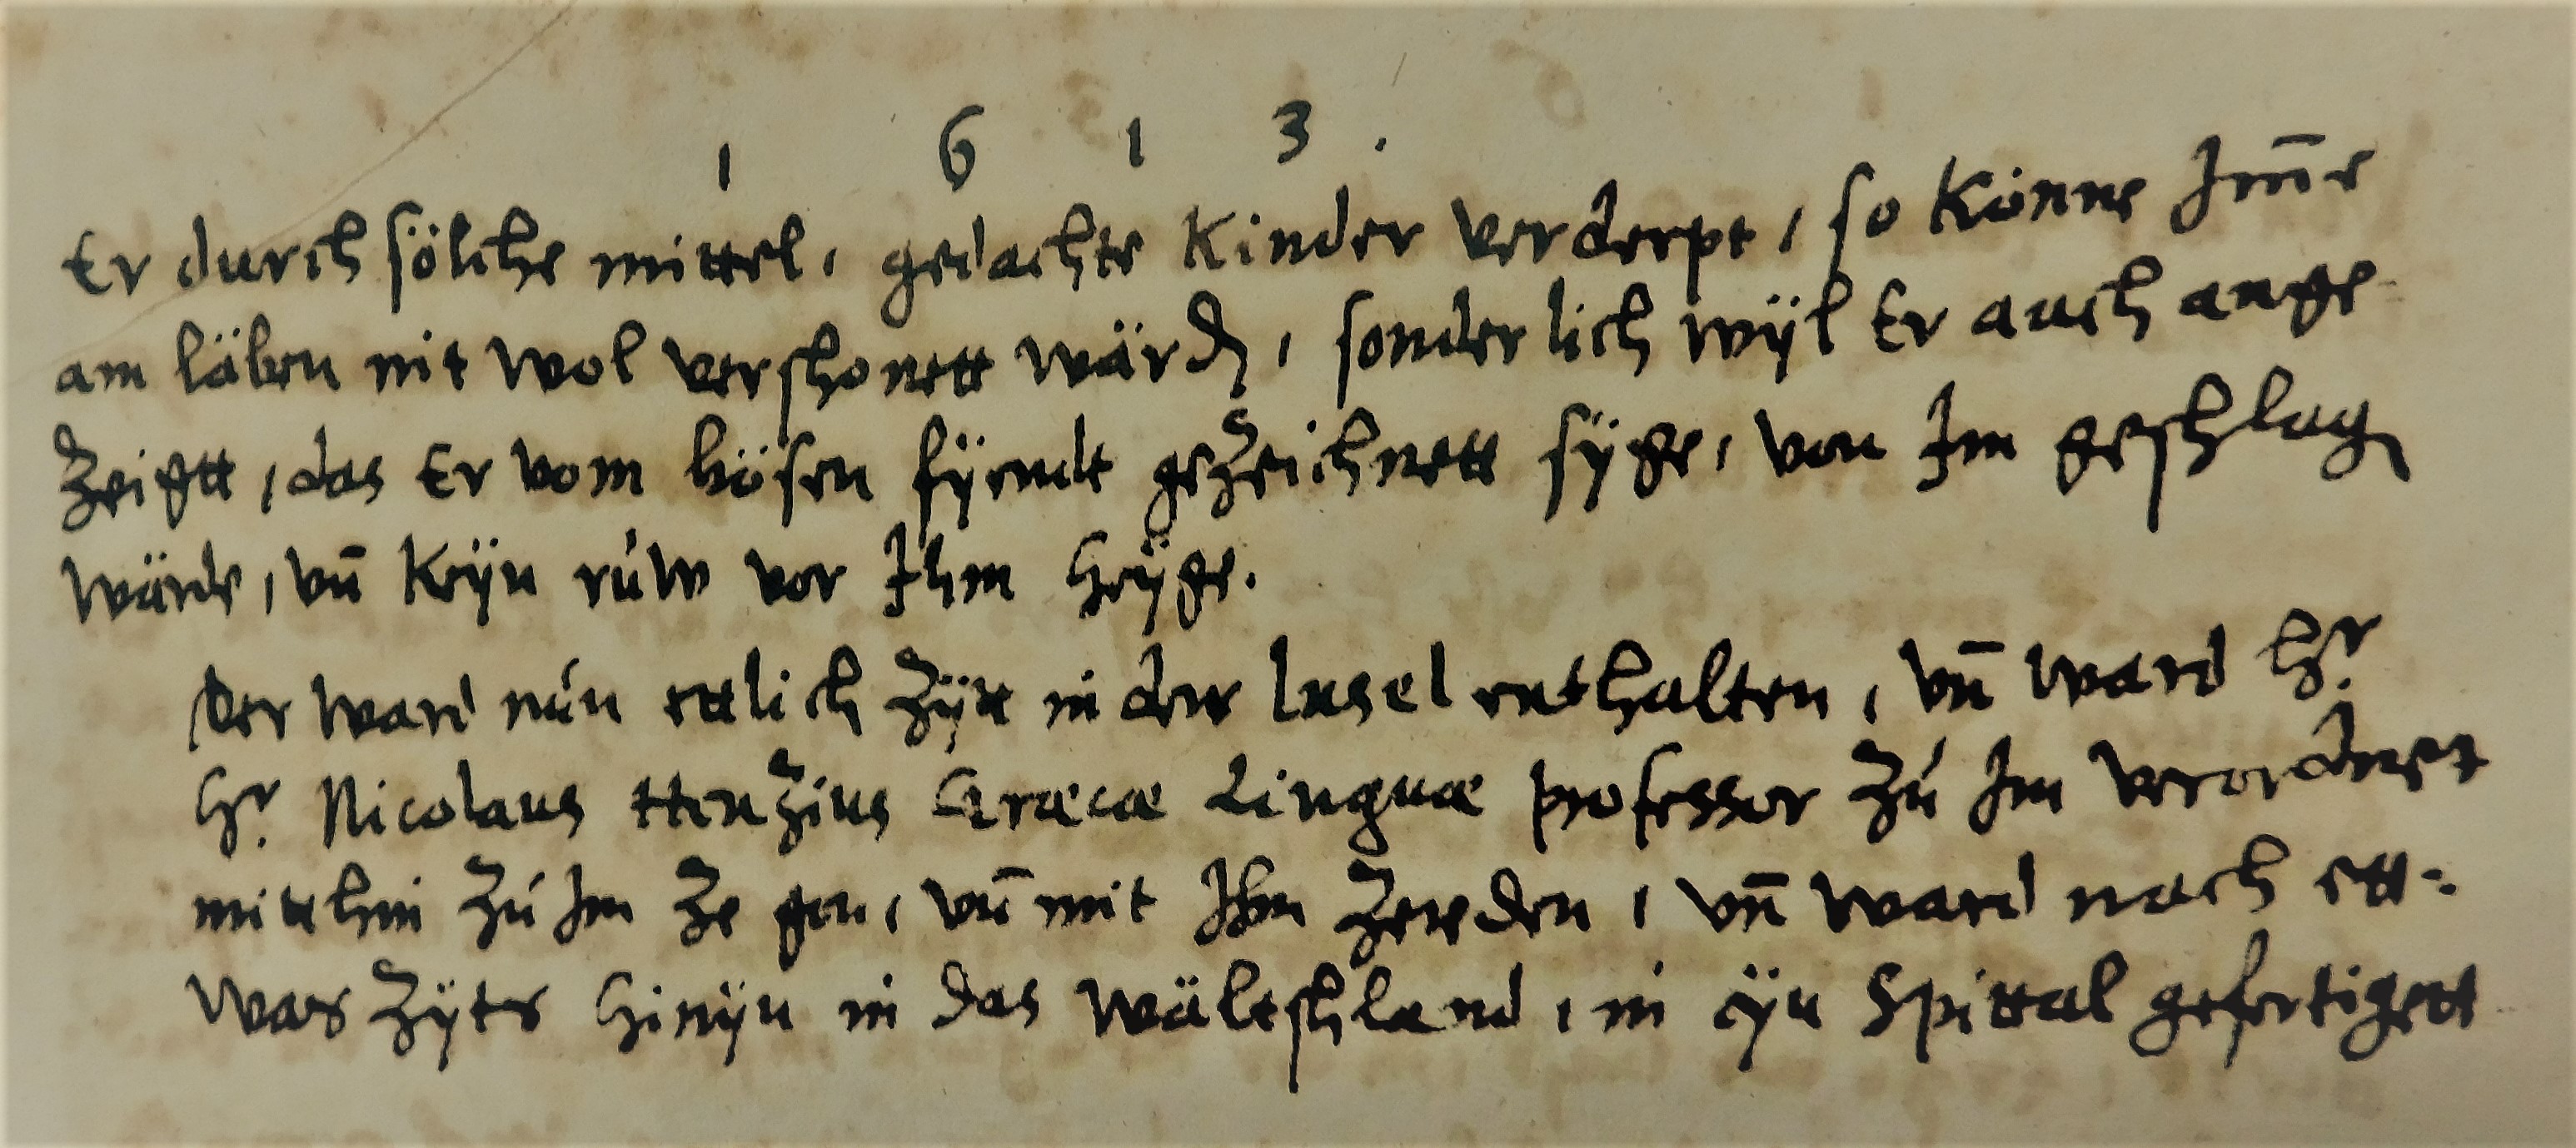 1 6 1 3.
Er durch sölche mittel, gedachte Kinder verderpt, so könne Im̄e
am läben nit wol verschonett wärdē, sonderlich wÿl Er auch ange-
Zeigtt, das Er vom bösen fÿendt gezeichnett sÿge, von Im geschlagē
wärde, vn̄ kein rúw vor Ihm heÿge.
Der ward nún ettlich Zÿtt in der Insel enthalten, vn̄ ward Hr.
Hr. Nicolaus Henzius Græcæ Linguæ professor Zú Im verordnet
mitthin Zú Im Ze gen, vn̄ mit Ihm Zereden, vn̄ ward nach ett=
was Zÿts hinÿn in das Wältschland, in ein Spittal gefertigett